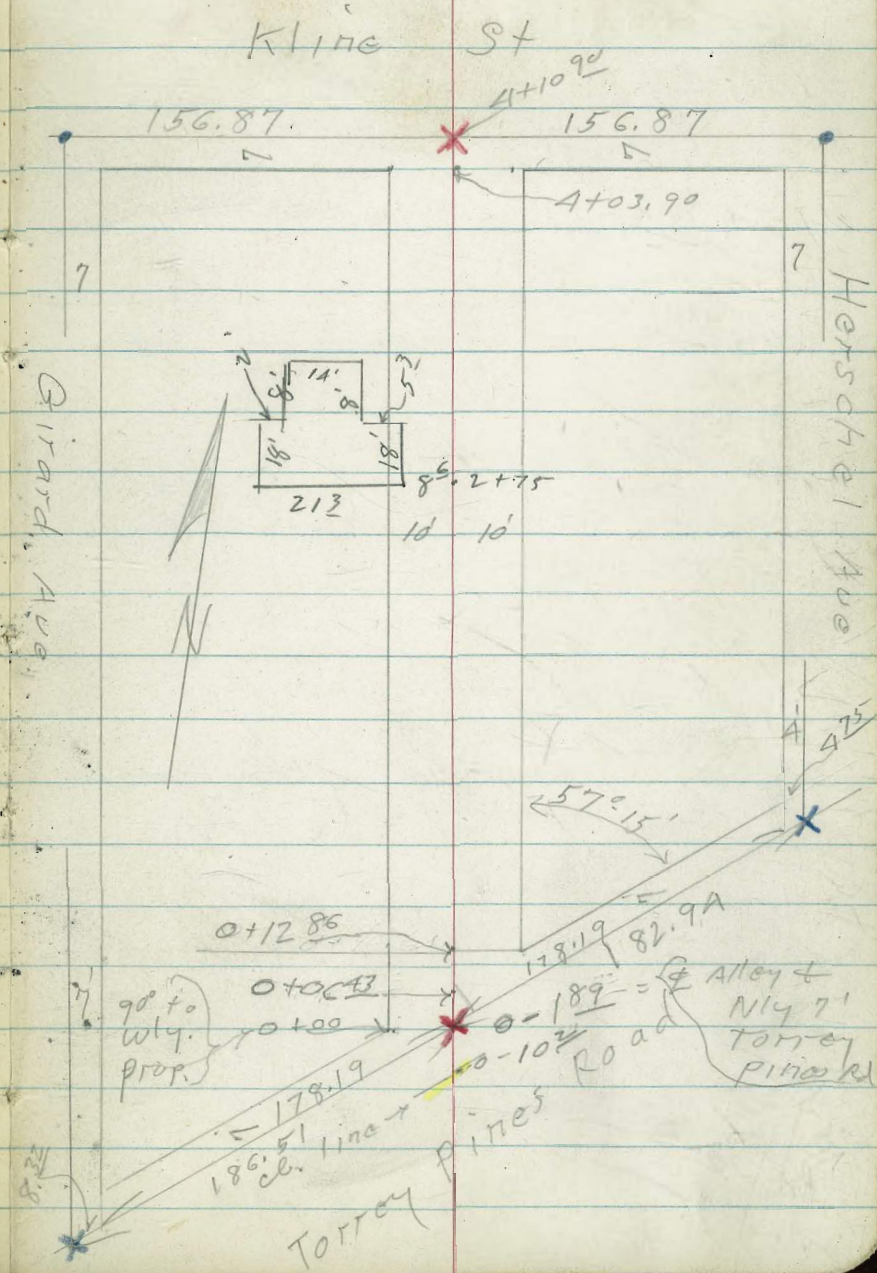 Kline St
4+10 90
156.87.
156.87
7
7
4+03.90
7
7
Girard Ave.
Herschel Ave
2'
8'
14'
8'
5 3
18'
18'
8 6 . 2+75
21 3
10' 10'
N
4'
4 75
57° 15'
0+12 86
178.19
82.9
0+06 43
7'
90° to
wly.
prop.
0+00
0-1 89 = ℄ Alley &
Nly 7'
Torrey
Pines Rd
0-10 2
178.19
186.51
cb. line
Torrey Pines Road
8.32